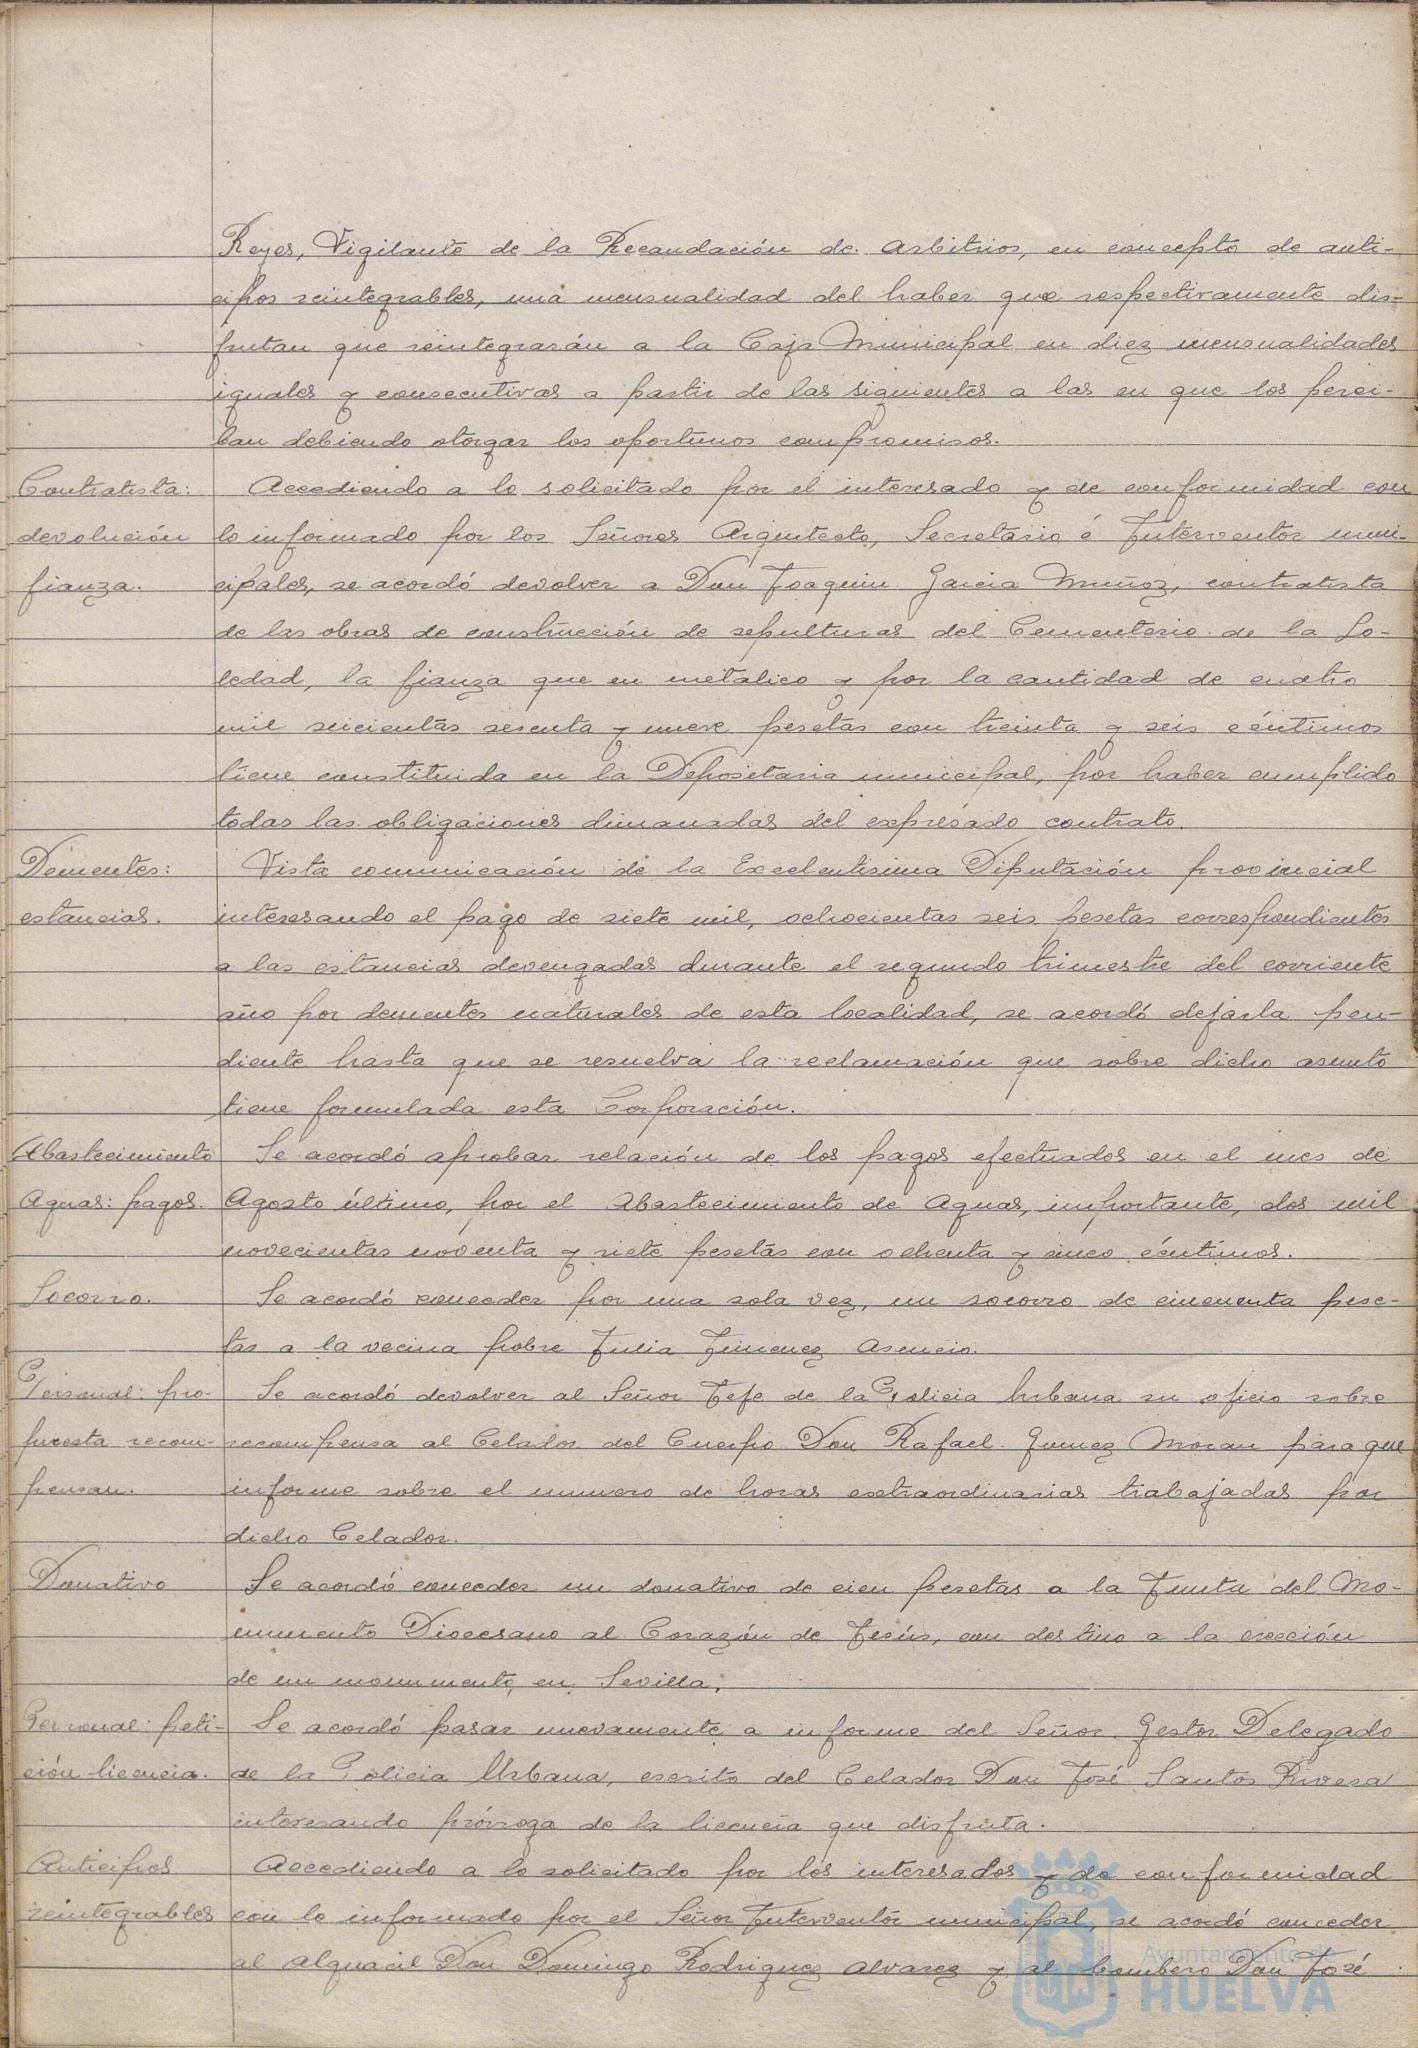 Reyes, Vigilante de la Recaudación de. Arbitrios, en concepto de anti-
cipos reintegrables, una mensualidad del haber que respectivamente dis-
frutan que reintegrarán a la Caja Municipal en diez mensualidades
iguales y consecutivas a partir de las siguientes a las en que los perci-
ban debiendo otorgar los oportunos compromisos.
Contratista: Accediendo a lo solicitado por el interesado y de conformidad con
devolución lo informado por los Señores Arquitecto, Secretario é Interventor muni-
fianza. cipales, se acordó devolver a Don Joaquin Garcia Muñoz, contratista
de las obras de construcción de sepulturas del Cementerio de la So-
ledad, la fianza que en metalico y por la cantidad de cuatro
mil seicientas sesenta y nueve pesetas con treinta y seis céntimos
tiene constituida en la Depositaria municipal, por haber cumplido
todas las obligaciones dimanadas del expresado contrato.
Dementes: Vista comunicación de la Excelentisima Diputación provincial
estancias. interesando el pago de siete mil, ochocientas seis pesetas correspondientes
a las estancias devengadas durante el segundo trimestre del corriente
año por dementes naturales de esta localidad, se acordó dejarla pen-
diente hasta que se resuelva la reclamación que sobre dicho asunto
tiene formulada esta Corporación.
Abastecimiento Se acordó aprobar relación de los pagos efectuados en el mes de
Aguas: pagos. Agosto último, por el Abastecimiento de Aguas, importante, dos mil
novecientas noventa y siete pesetas con ochenta y cinco céntimos.
Socorro. Se acordó conceder por una sola vez, un socorro de cincuenta pese-
tas a la vecina pobre Julia Jimenez Asencio.
Personal: pro- Se acordó devolver al Señor Jefe de la Policia Urbana su oficio sobre
puesta recom- recompensa al Celador del Cuerpo Don Rafael Gomez Moran para que
pensan. informe sobre el numero de horas extraordinarias trabajadas por
dicho Celador.
Donativo Se acordó conceder un donativo de cien pesetas a la Junta del Mo-
numento Diocesano al Corazón de Jesús, con destino a la erección
de un monumento en Sevilla.
Personal: peti- Se acordó pasar nuevamente a informe del Señor Gestor Delegado
ción licencia. de la Policia Urbana, escrito del Celador Don José Santos Rivera
interesando prórroga de la licencia que disfruta.
Anticipos Accediendo a lo solicitado por los interesados y de conformidad
reintegrables con lo informado por el Señor Interventor municipal, se acordó conceder
al Alguacil Don Domingo Rodriguez Alvarez y al bombero Don José
Ayuntamiento de
HUELVA